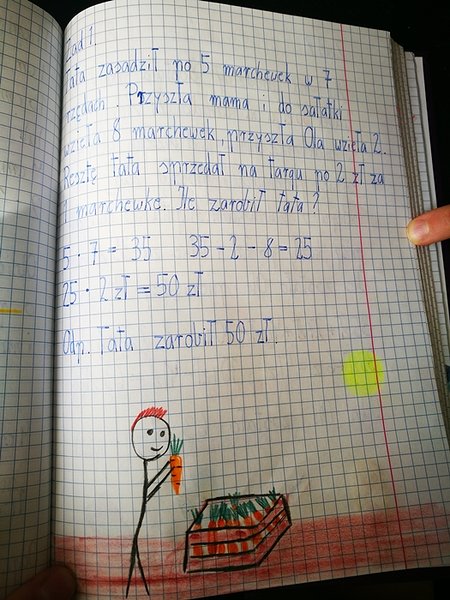 Zad 1.
Tata zasadził po 5 marchewek w 7
rzędach. Przyszła mama i do sałatki
wzięła 8 marchewek, przyszła Ola wzięła 2.
Resztę tata sprzedał na targu po 2 zł za
1 marchewkę. Ile zarobił tata?
5 · 7 = 35 35 - 2 - 8 = 25
25 · 2 zł = 50 zł
Odp. Tata zarobił 50 zł.